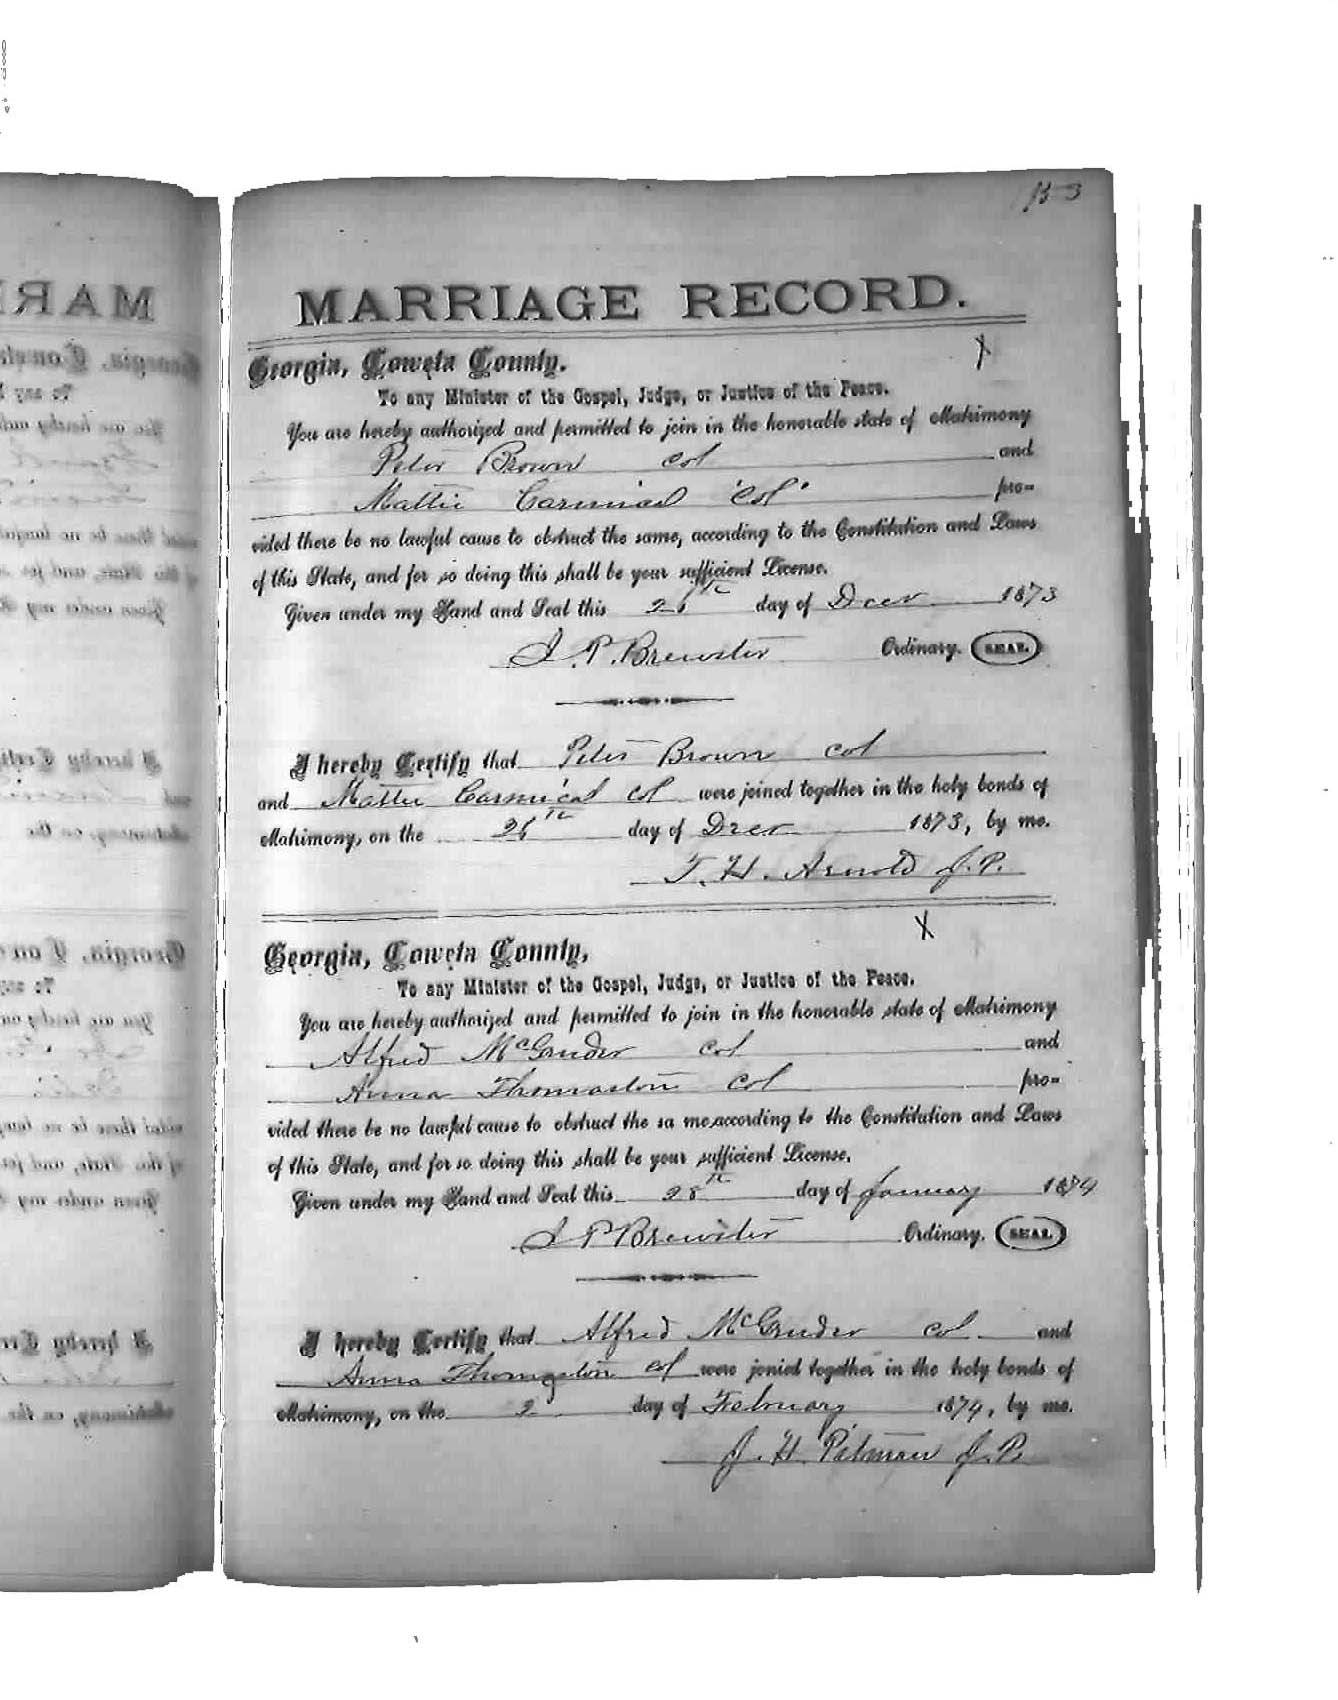 153
MARRIAGE RECORD.
Georgia, Coweta County.
X
To any Minister of the Gospel, Judge, or Justice of the Peace.
You are hereby authorized and permitted to join in the honorable state of Matrimony
Peter Brown col and
Mattie Carmical "Col" pro=
vided there be no lawful cause to obstruct the same, according to the Constitution and Laws
of this State, and for so doing this shall be your sufficient License.
Given under my Hand and Seal this 26th day of Decr 1873
J. P. Brewster Ordinary. SEAL.
I hereby Certify that Peter Brown col
and Mattie Carmical col were joined together in the holy bonds of
Matrimony, on the 26th day of Decr 1873, by me.
T. H. Arnold J. P.
X
Georgia, Coweta County,
To any Minister of the Gospel, Judge, or Justice of the Peace.
You are hereby authorized and permitted to join in the honorable state of Matrimony
Alfred McGruder col and
Anna Thomaston col pro=
vided there be no lawful cause to obstruct the sa me,according to the Constitution and Laws
of this State, and for so doing this shall be your sufficient License.
Given under my Hand and Seal this 28th day of January 1874
J P Brewster Ordinary. SEAL
I hereby Certify that Alfred McGruder col and
Anna Thomaston col were jonied together in the holy bonds of
Matrimony, on the 2 day of February 1874, by me.
J. H. Pitman J. P.